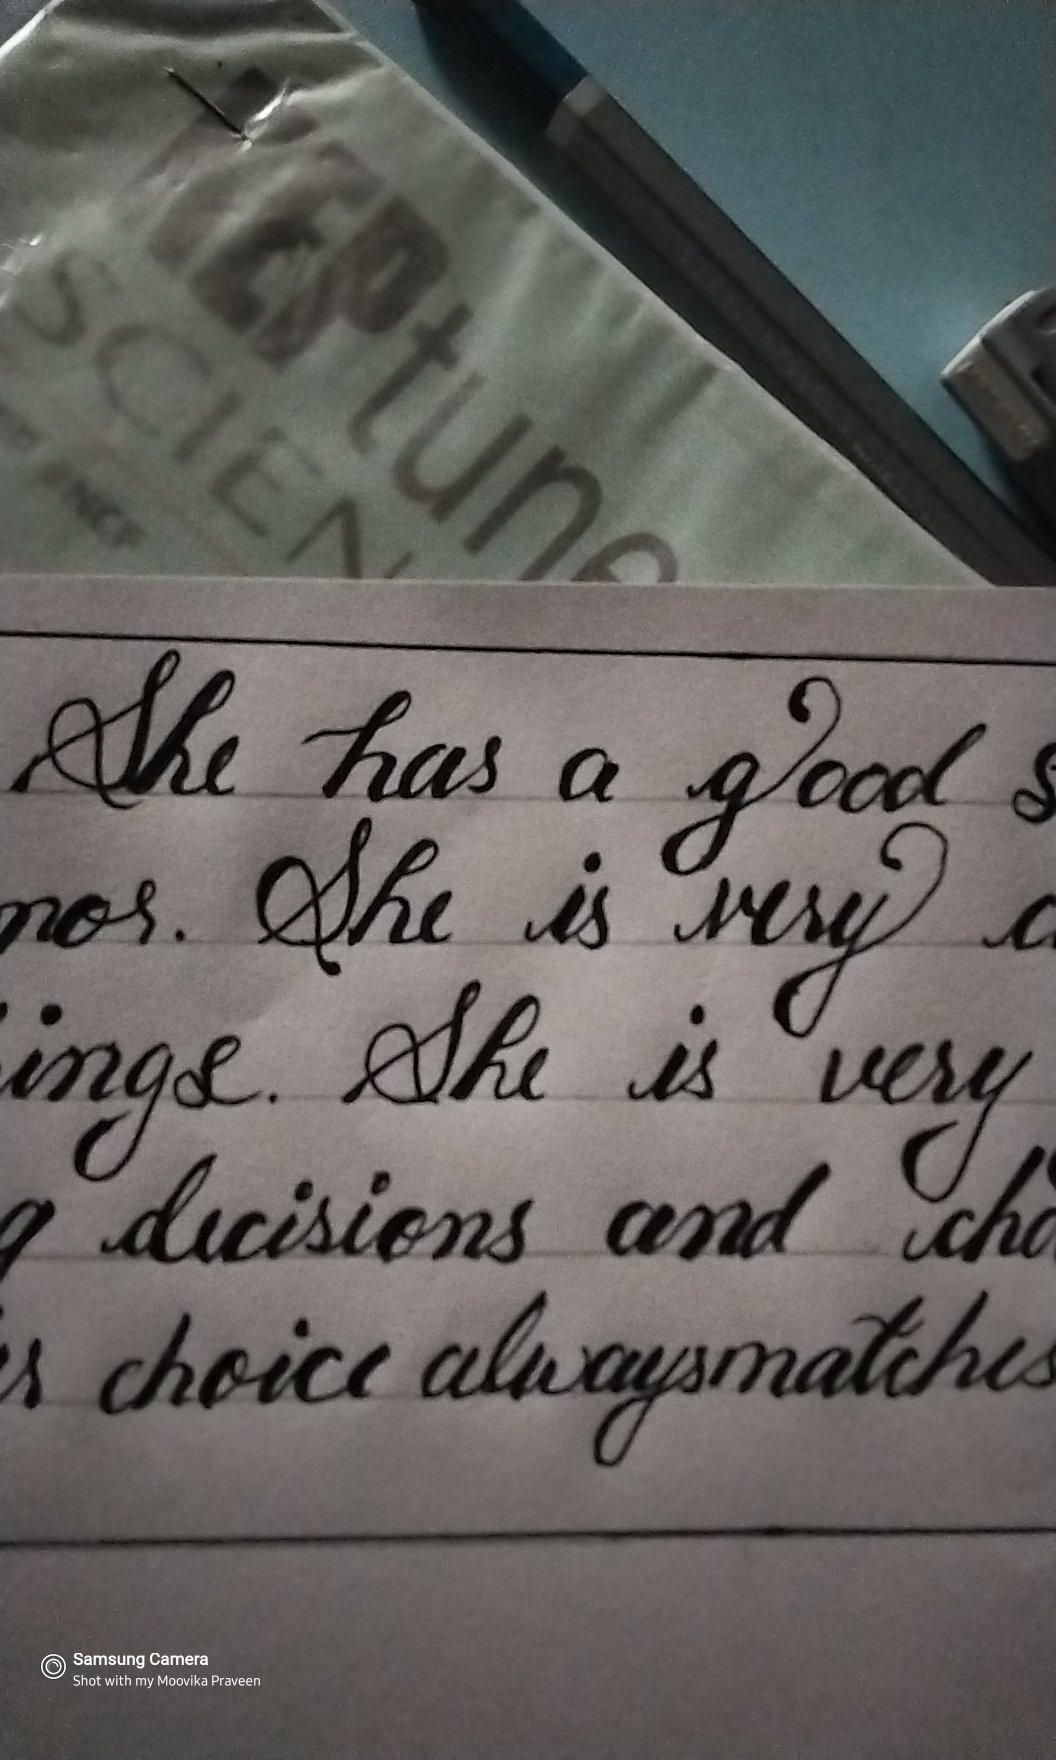 tune
SCIEN
NCF
She has a good s
mor. She is very c
ings. She is very
g decisions and cho
er choice alwaysmatches
Samsung Camera
Shot with my Moovika Praveen